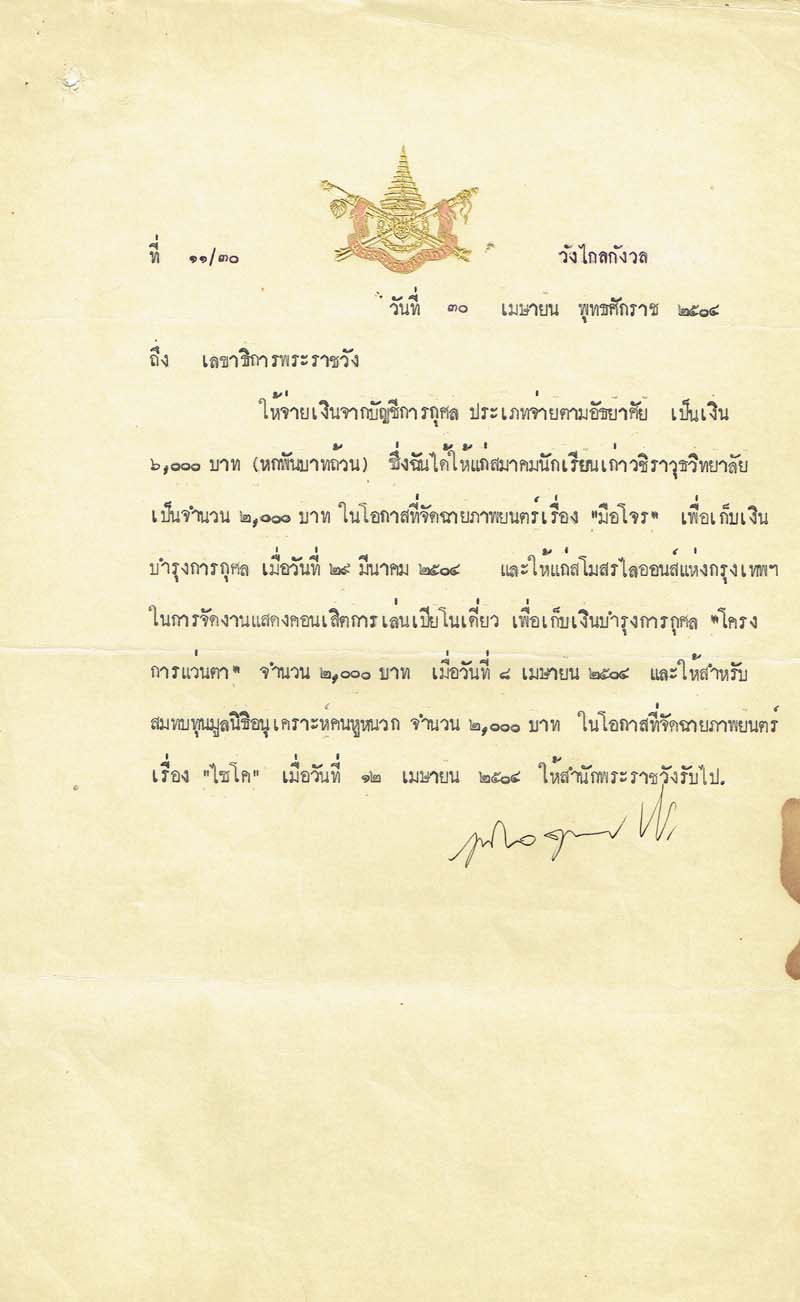 ที่ ๑๑/๓๐ วังไกลกังวล
วันที่ ๓๐ เมษายน พุทธศักราช ๒๕๐๔
ถึง เลขาธิการพระราชวัง
ให้จ่ายเงินจากบัญชีการกุศล ประเภทจ่ายตามอัธยาศัย เป็นเงิน
๖,๐๐๐ บาท (หกพันบาทถ้วน) ซึ่งฉันได้ให้แก่สมาคมนักเรียนเก่าวชิราวุธวิทยาลัย
เป็นจำนวน ๒,๐๐๐ บาท ในโอกาสที่จัดฉายภาพยนตร์เรื่อง "มือโจร" เพื่อเก็บเงิน
บำรุงการกุศล เมื่อวันที่ ๒๙ มีนาคม ๒๕๐๔ และให้แก่สโมสรไลออนส์แห่งกรุงเทพฯ
ในการจัดงานแสดงคอนเสิตการเล่นเปียโนเดี่ยว เพื่อเก็บเงินบำรุงการกุศล "โครง
การแว่นตา" จำนวน ๒,๐๐๐ บาท เมื่อวันที่ ๘ เมษายน ๒๕๐๔ และให้สำหรับ
สมทบทุนมูลนิธิอนุเคราะห์คนหูหนวก จำนวน ๒,๐๐๐ บาท ในโอกาสที่จัดฉายภาพยนตร์
เรื่อง "ไซโค" เมื่อวันที่ ๑๒ เมษายน ๒๕๐๔ ให้สำนักพระราชวังรับไป.